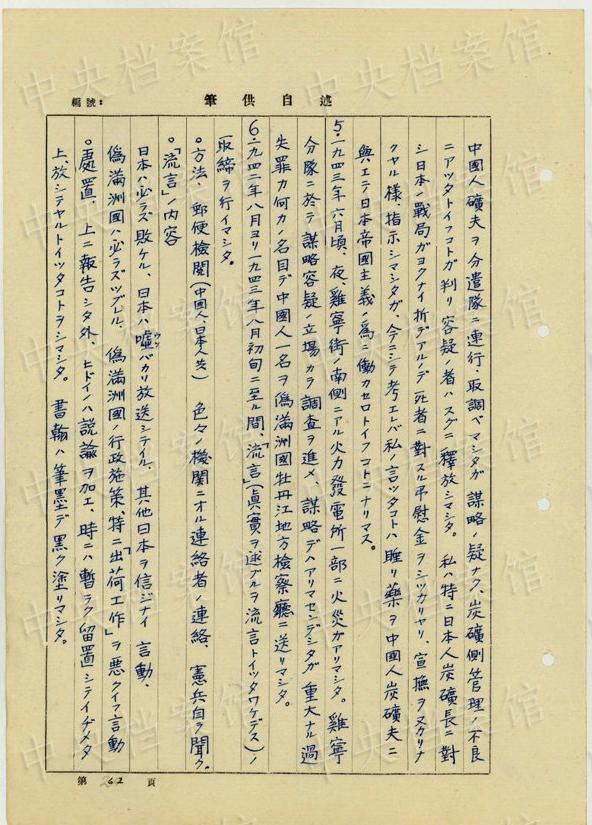 編號：
筆供自述
中國人礦夫ヲ分遣隊ニ連行・取調ベマシタガ 謀略ノ疑ナク、炭礦側管理ノ不良
ニアツタトイフコトガ判リ容疑者ハスグニ釋放シマシタ。 私ハ特ニ日本人炭礦長ニ對
シ日本ノ戰局ガヨクナイ折デアルノデ死者ニ對スル弔慰金ヲシツカリヤリ、宣撫ヲヌカリナ
クヤル様、指示シマシタガ、今ニシテ考エレバ私ノ言ツタコトハ睡リ藥ヲ中國人炭礦夫ニ
與ハエテ日本帝國主義ノ爲ニ働カセロトイフコトニナリマス。
5.一九四三年六月頃、夜、雞寧街ノ南側ニアル火力發電所一部ニ火災ガアリマシタ。雞寧
分隊ニ於テ 謀略容疑ノ立場カラ調査ヲ進メ、謀略デハアリマセンデシタガ 重大ナル過
失罪カ何カノ名目デ中國人一名ヲ僞滿洲國牡丹江地方檢察廳ニ送リマシタ。
6.一九四二年八月ヨリ一九四三年八月初旬ニ至ル間、「流言」(眞實ヲ述ブルヲ流言トイツタワケデス)ノ
取締ヲ行イマシタ。
○方法、郵便檢閲(中國人、日本人共) 色々ノ機関ニオル連絡者ノ連絡、憲兵自ラ聞ク。
○「流言」ノ内容
日本ハ必ラズ敗ケル、日本ハ嘘バカリ放送シテイル、其他日本ヲ信ジナイ 言動、
僞滿洲國ハ必ラズツブレル、僞滿洲國ノ行政施策、特ニ「出荷工作」ヲ悪クイフ言動
○處置、上ニ報告シタ外、ヒドイノハ説諭ヲ加エ、時ニハ暫ラク留置シテイヂメタ
上、放シテヤルトイツタコトヲシマシタ。 書翰ハ筆墨デ黒ク塗リマシタ。
第 62 頁
中央档案馆